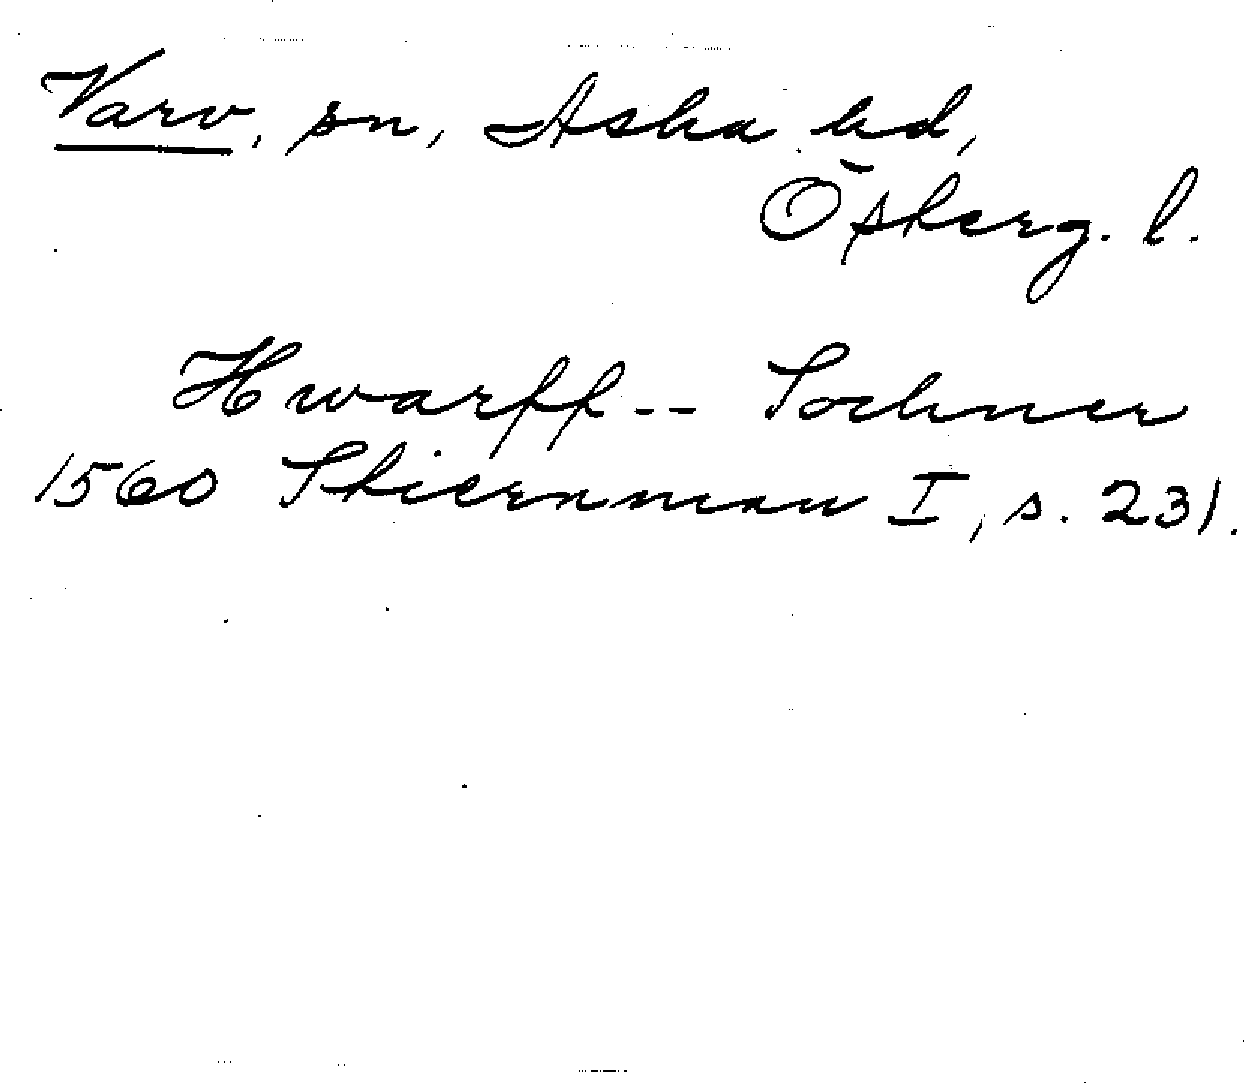 Varv, sn, Aska hd,
Östkerg. l.
Hwarff -- Sochner
1560 Stiernman I, s. 231.